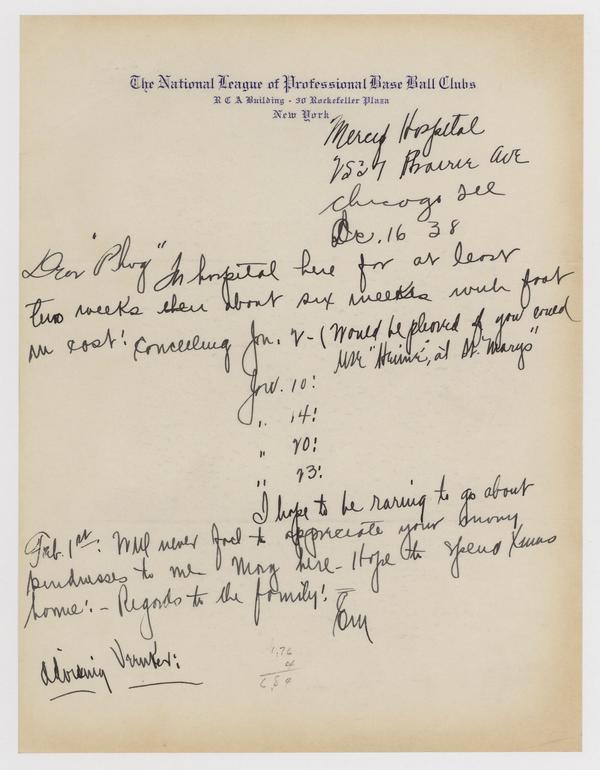 The National League of Professional Base Ball Clubs
R C A Building - 30 Rockefeller Plaza
New York
Mercy Hospital
2537 Prairie Ave
Chicago Ill
Dec. 16 38
Dear "Phog" In hospital here for at least
two weeks then about six weeks with foot
in cast! Cancelling Jan. 2 - (Would be pleased if you could
use "Heinie", at St. "Marys"
Jan. 10!
" 14!
" 20!
" 23!
I hope to be raring to go about
Feb. 1st: Will never fail to appreciate your many
kindnesses to me Marg here - Hope to spend Xmas
home! - Regards to the family!
advising
1,76
4